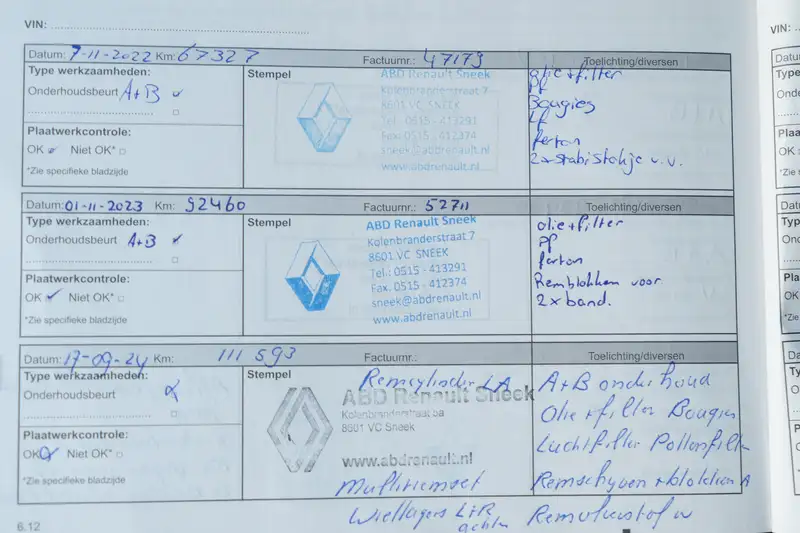 VIN:
Datum: 7-11-2022 Km: 67327 Factuurnr.: 47179 Toelichting/diversen
Type werkzaamheden:
Onderhoudsbeurt A+B
Plaatwerkcontrole:
OK Niet OK*
*Zie specifieke bladzijde
Stempel
ABD Renault Sneek
Kolenbranderstraat 7
8601 VC SNEEK
Tel.: 0515 - 413291
Fax. 0515 - 412374
sneek@abdrenault.nl
www.abdrenault.nl
olie+filter
PF
Bougies
LF
ferton
2x stabistokje v.v.
Datum: 01-11-2023 Km: 92460 Factuurnr.: 52711 Toelichting/diversen
Type werkzaamheden:
Onderhoudsbeurt A+B
Plaatwerkcontrole:
OK Niet OK*
*Zie specifieke bladzijde
Stempel
ABD Renault Sneek
Kolenbranderstraat 7
8601 VC SNEEK
Tel.: 0515 - 413291
Fax. 0515 - 412374
sneek@abdrenault.nl
www.abdrenault.nl
olie+filter
PF
ferton
Remblokken voor
2x band.
Datum: 17-09-24 Km: 111 593 Factuurnr.: Toelichting/diversen
Type werkzaamheden:
Onderhoudsbeurt
Plaatwerkcontrole:
OK Niet OK*
*Zie specifieke bladzijde
Stempel
Remcylinder LA
ABD Renault Sneek
Kolenbranderstraat
8601 VC Sneek
www.abdrenault.nl
Multiriemset
Wiellagers L+R
achter
A+B onderhoud
Olie+filter Bougies
Luchtfilter Pollenfilter
Remschyven+blokken A
Remvloeistof
6.12